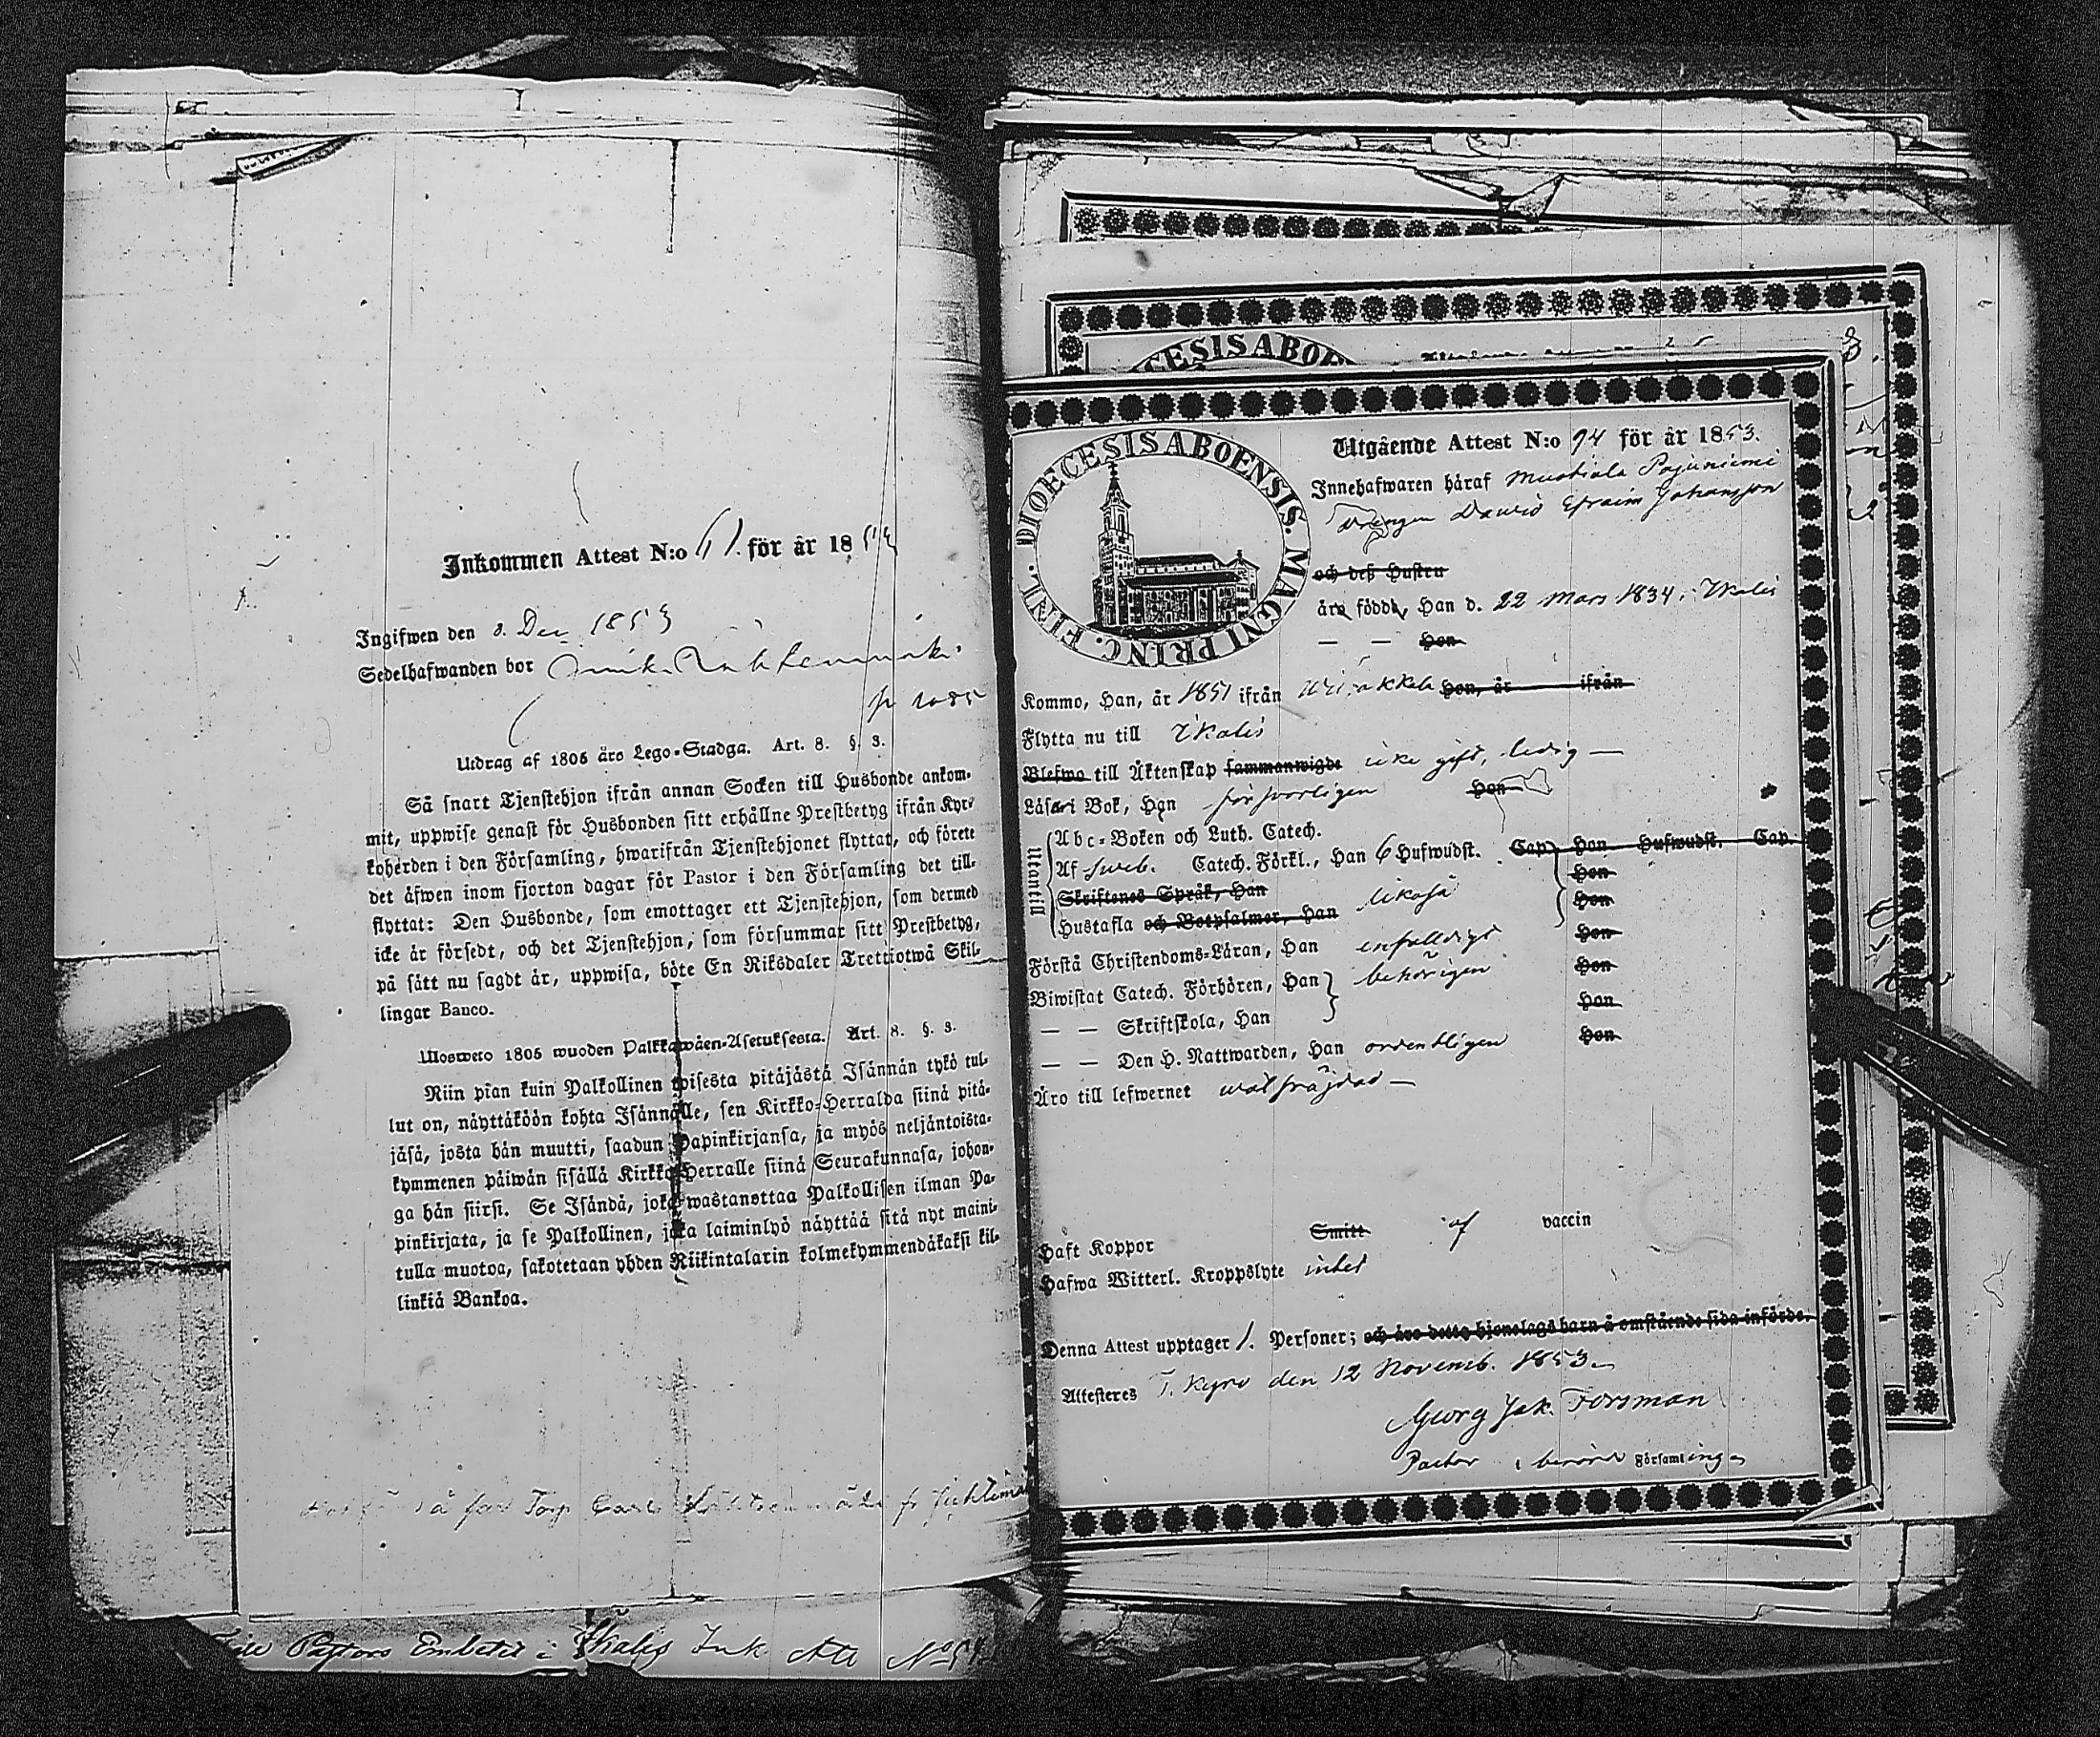 Inkommen Attest N:o 61. för år 1853
Ingifwen den 8. Dec 1853
Sedelhafwanden bor
p 1085
Utdrag af 1805 års Lego-Stadga. Art. 8. §. 3.
Så snart Tjenstehjon ifrån annan Socken till Husbonde ankom-
mit, uppwise genast för Husbonden sitt erhållne Prestbetyg ifrån Kyr-
koherden i den Församling, hwarifrån Tjenstehjonet flyttat, och förete
det äfwen inom fjorton dagar för Pastor i den Församling det till-
flyttat: Den Husbonde, som emottager ett Tjenstehjon, som dermed
icke är försedt, och det Tjenstehjon, som försummar sitt Prestbetyg,
på sätt nu sagdt är, uppwisa, böte En Riksdaler Trettiotwå Skil-
lingar Banco.
Ulosweto 1805 wuoden Palkkawäen-Asetuksesta. Art. 8. §. 3.
Niin pian kuin Palkollinen toisesta pitäjästä Isännän tykö tul-
lut on, näyttäköön kohta Isännälle, sen Kirkko-Herralda siinä pitä-
jäsä, josta hän muutti, saadun Papinkirjansa, ja myös neljäntoista-
kymmenen päiwän sisällä Kirkko-Herralle siinä Seurakunnasa, johon-
ga hän siirsi. Se Isändä, joka wastanottaa Palkollisen ilman Pa-
pinkirjata, ja se Palkollinen, joka laiminlyö näyttää sitä nyt maini-
tulla muotoa, sakotetaan yhden Riikintalarin kolmekymmendäkaksi kil-
linkiä Bankoa.
så för Torp. Carl
Till Pastors Embetet i Ikalis Ink. Att No 54
DIOECESIS ABOENSIS. MAGNI PRINC. FINL.
DIOECESIS ABOENSIS
Utgående Attest N:o 94 för år 1853.
Innehafwaren häraf Mustiala Pajuniemi
drängen David Efraim Johansson
och deß Hustru
äro födde, Han d. 22 Mars 1834 i Ikalis
— — Hon
Kommo, Han, år 1851 ifrån Wiljakkala Hon, år ifrån
Flytta nu till Ikalis
Blefwo till Äktenskap sammanwigde icke gift, ledig —
Läsa i Bok, Han försvarligen Hon
Utantill
Abc-Boken och Luth. Catech.
Af Sveb. Catech. Förkl., Han 6 Hufwudst. Cap. Hon Hufwudst. Cap.
Skriftenes Språk, Han Hon
Hustafla och Botpsalmer, Han likaså Hon
Förstå Christendoms-Läran, Han enfalldigt Hon
Biwistat Catech. Förhören, Han behörigen Hon
— — Skriftskola, Han Hon
— — Den H. Nattwarden, Han ordentligen Hon
Äro till lefwernet wälfräjdad —
Haft Koppor Smitt af vaccin
Hafwa Witterl. Kroppslyte intet
Denna Attest upptager 1. Personer; och äro detta hjonelags barn å omstående sida införde.
Attesteres T. Kyro den 12 Novemb. 1853.
Georg Jak. Forsman
Pastor i berörd Församlingen